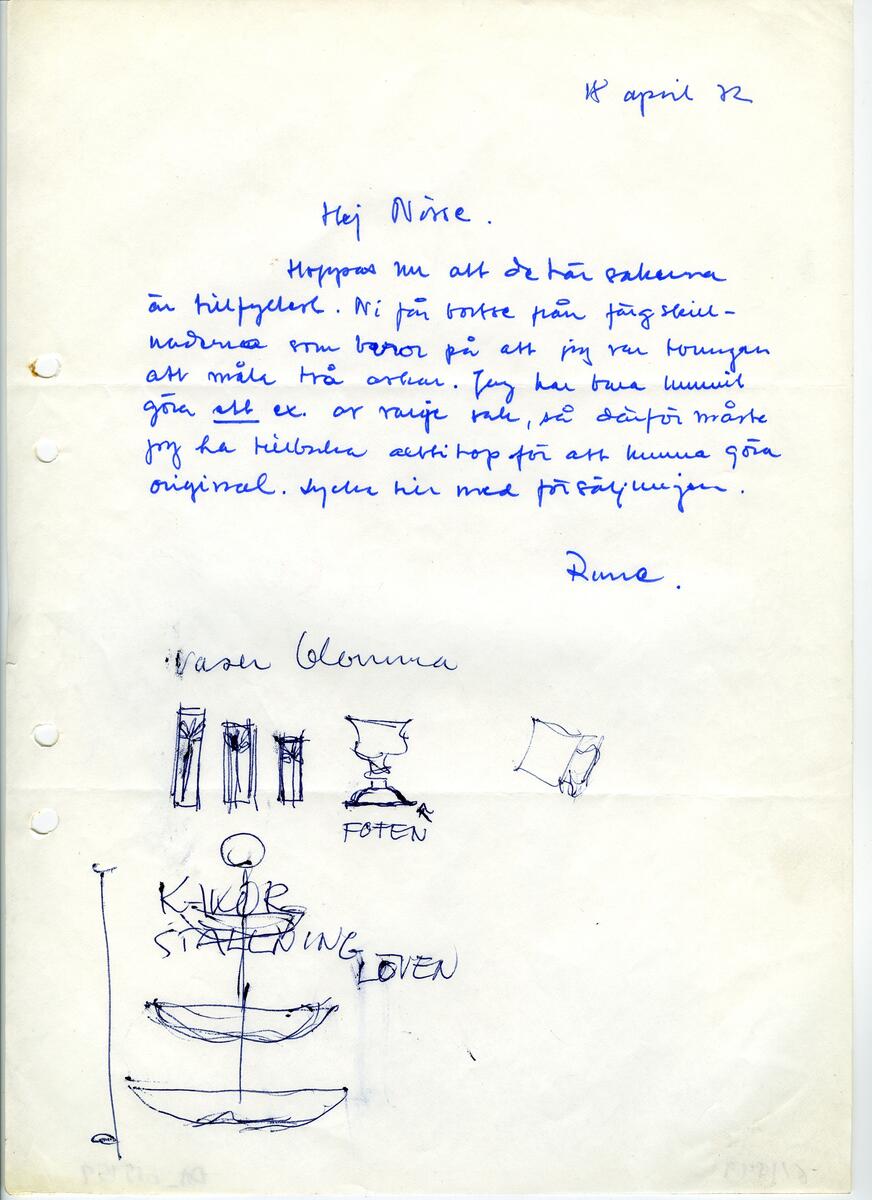 18 april 72
Hej Nisse.
Hoppas nu att de här sakerna
är tillfyllest. Ni får bortse från färgskill-
naderna som beror på att jag var tvungen
att måla två askar. Jag har bara hunnit
göra ett ex. av varje sak, så därför måste
jag ha tillbaka alltihop för att kunna göra
original. Lycka till med försäljningen.
Rune.
vaser blomma
FOTEN
KAKOR
STÄLLNING
LÖVEN